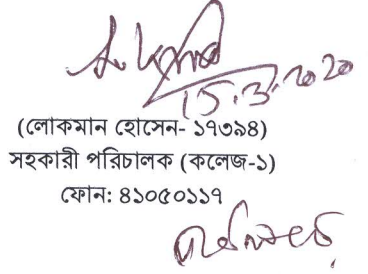 15.3.2020
(লোকমান হোসেন- ১৭৩৯৪)
সহকারী পরিচালক (কলেজ-১)
ফোন: ৪১০৫০১১৭